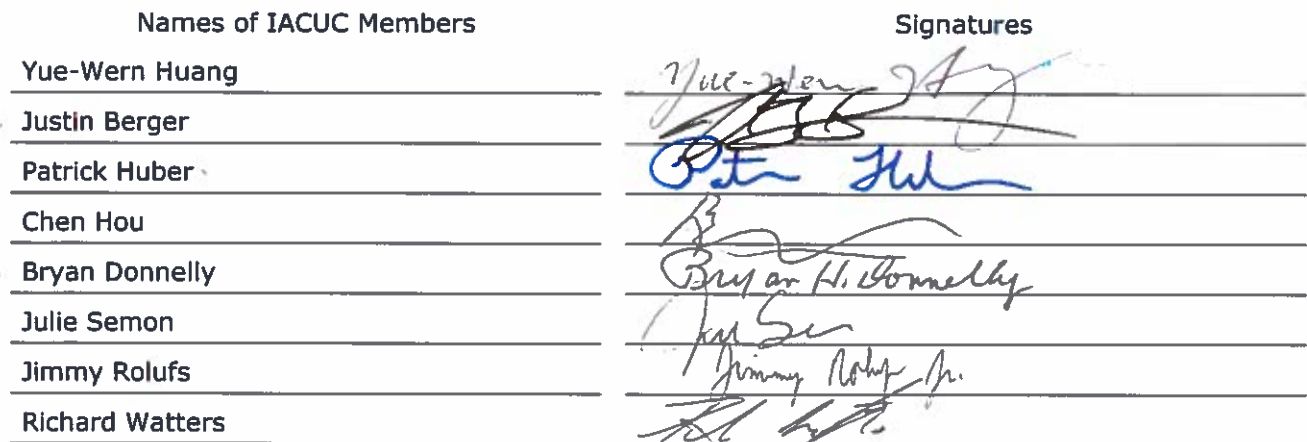 Names of IACUC Members Signatures
Yue-Wern Huang Yue-Wern
Justin Berger
Patrick Huber
Chen Hou
Bryan Donnelly Bryan H. Donnelly
Julie Semon
Jimmy Rolufs Jimmy Rolufs Jr.
Richard Watters